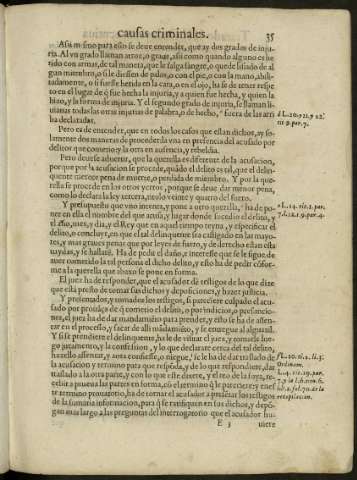 causas criminales.
35
Assi mismo para esto se deue entender, que ay dos grados de inju-
ria. Al vn grado llaman atroz, o graue, assi como quando alguno es he
rido con armas, de tal manera, que le salga sangre, o quede lisiado de al
gun miembro, o si le diessen de palos, o con el pie, o con la mano, abil-
tadamente, o si fuesse herido en la cara, o en el ojo, ha se de tener respe
to en el lugar de q̃ fue hecha la injuria, y a quien fue hecha, y quien la
hizo, y la forma de injuria. Y el segundo grado de injuria, se llaman li-
uianas todas las otras injurias de palabra, o de hecho, fuera de las arri
ba declaradas.
Pero es de entender, que en todos los casos que estan dichos, ay so-
lamente dos maneras de proceder da vna en presencia del acusado por
delito que cometio y la otra en ausencia, y rebeldia.
Pero deuese aduertir, que la querella es diferente de la acusacion,
por que por la acusacion se procede, quãdo el delito es tal, que el delin-
quente merece pena de muerte, o perdida de miembro. Y por la que
rella se procede en los otros yerros, porque se deue dar menor pena,
como lo declara la ley tercera, titulo veinte y quatro del fuero.
Y presupuesto que vno intente, y pone a otro querella, ha de po-
ner en ella el nombre del que acusa, y lugar donde sucedio el delito, y
el año, mes, y dia, y el Rey que en aquel tiempo reyna, y especificar el
delito, o concluye, en que el tal delinquente sea castigado en las mayo-
res, y mas graues penas que por leyes de fuero, y de derecho estan esta
tuydas, y se hallare. Ha de pedir el daño, e interesse que se le sigue de
auer cometido la tal persona el dicho delito, y esto ha de pedir cõfor-
me a la querella que abaxo se pone en forma.
El juez ha de responder, que el acusador de testigos de lo que dize
que està presto de tomar sus dichos y deposiciones, y hazer justicia.
Y presentados, y tomados los testigos, si pareciere culpado el acu-
sado por prouãça de q̃ cometio el delito, o por indicios, o presuncio-
nes, el juez ha de dar mandamiẽto para prender, y esto se ha de assen-
tar en el processo, y sacar de alli mãdamiẽto, y se entregue al alguazil.
Y si se prendiere el delinquente, ha le de visitar el juez, y tomarle lue-
go juramento, y la confession, y lo que declarate cerca del tal delito,
hazello assentar, y aora confiesse, o niegue, se le ha de dar traslado de
la acusacion y termino para que respõda, y de lo que respondiere, dar
traslado a la otra parte, y con lo que este dixere, y el reo de la suya, re-
cebir a prueua las partes en forma, cõ el termino q̃ le pareciere y en es
te termino prouatorio, ha de tornar el acusador a presẽtar los testigos
de la sumaria informacion, para q̃ se ratifiquen en sus dichos, y depõ-
gan mas largo a las preguntas del interrogatorio que el acusador hu-
E 3
uiere